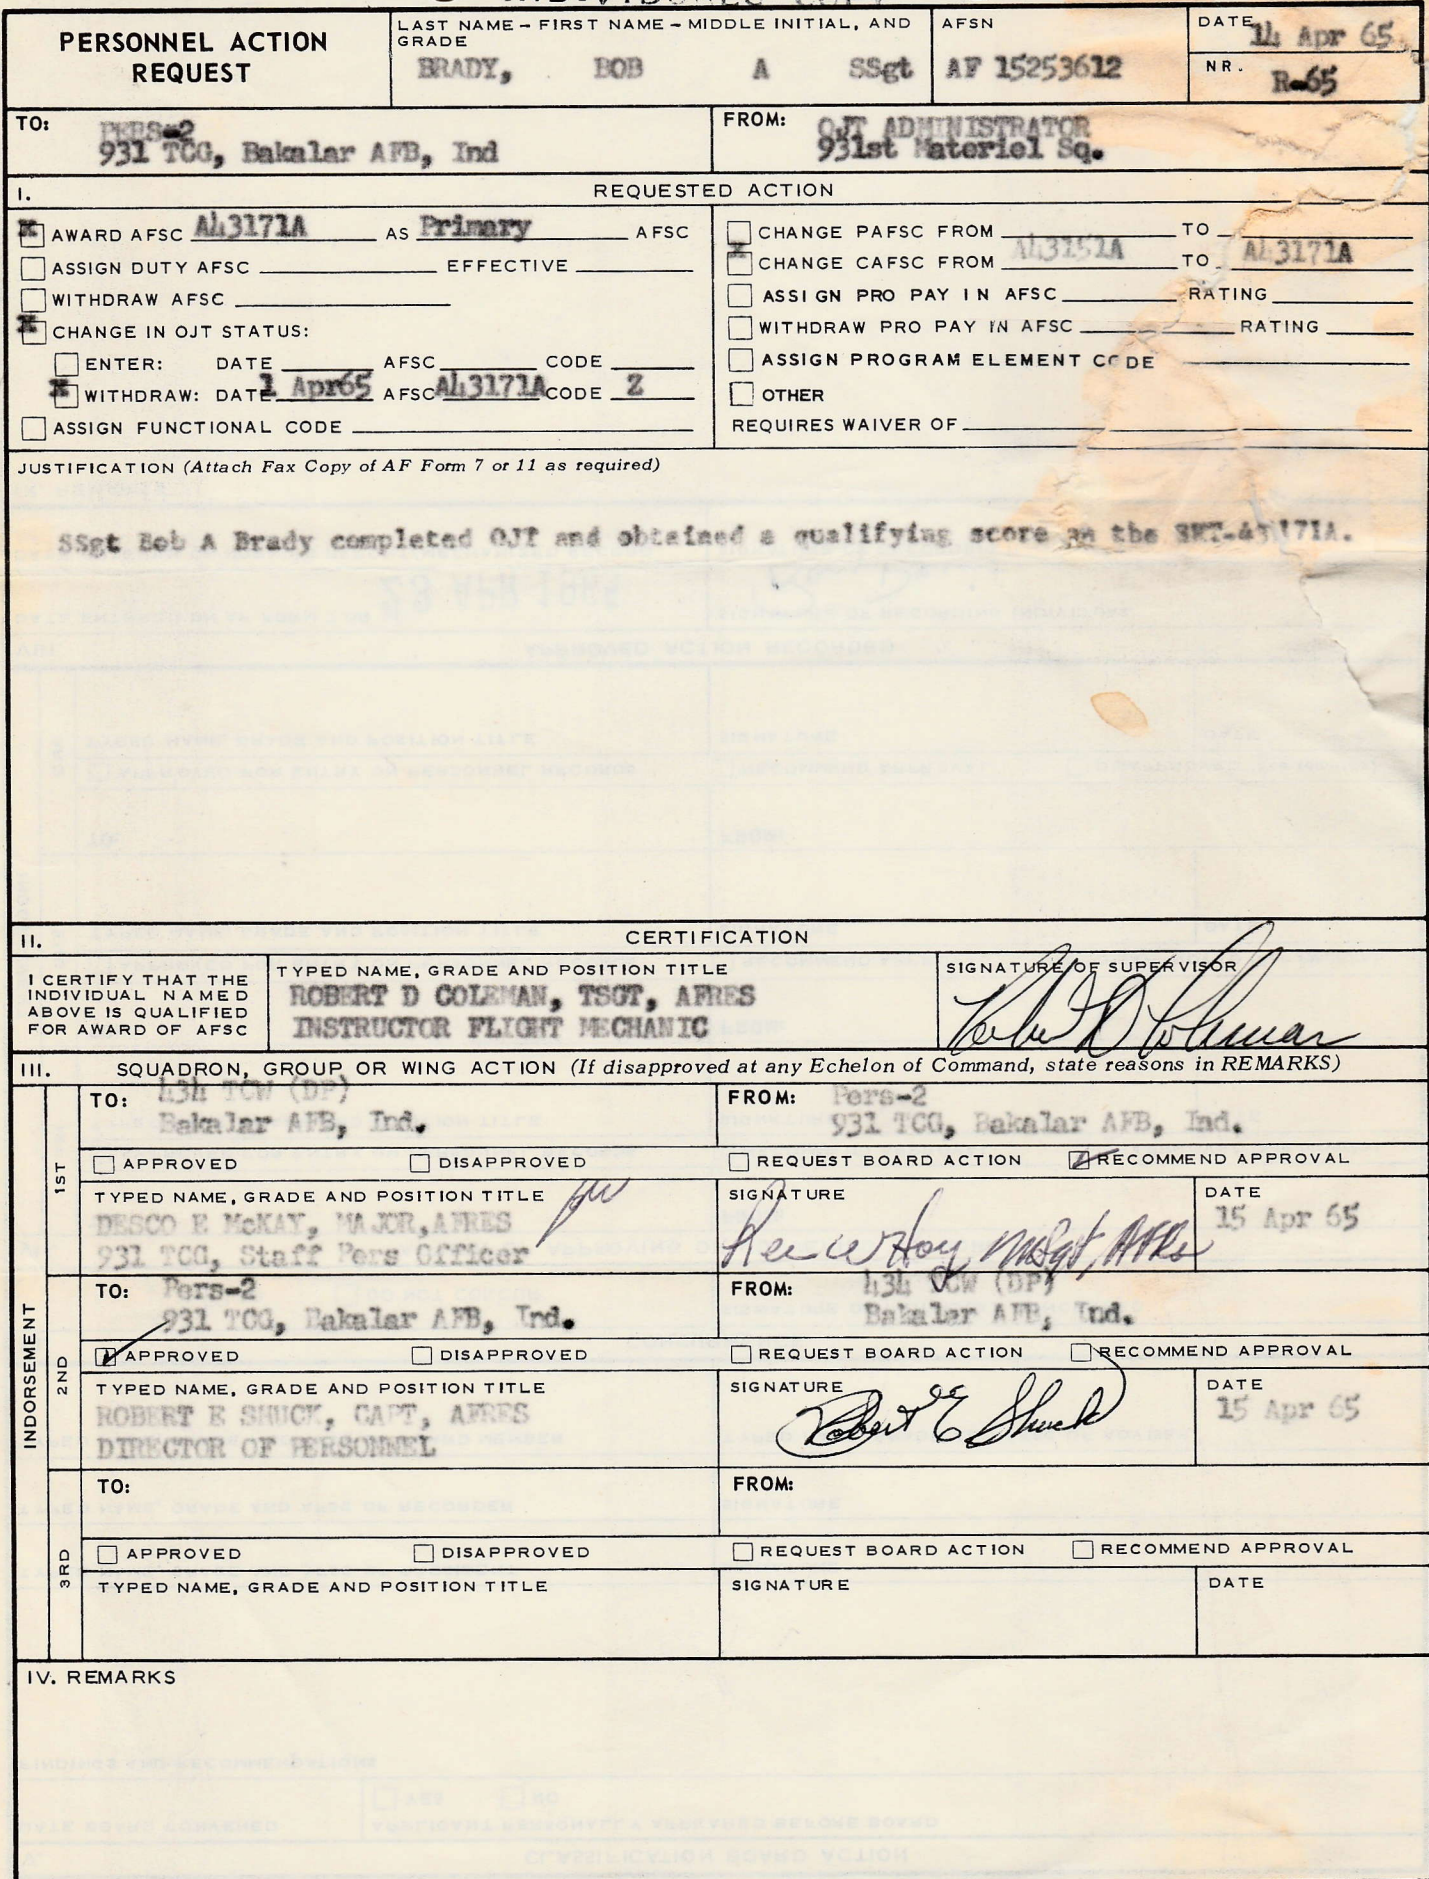 INDIVIDUALS COPY
PERSONNEL ACTION REQUEST
LAST NAME - FIRST NAME - MIDDLE INITIAL, AND GRADE
BRADY, BOB A SSgt
AFSN
AF 15253612
DATE 14 Apr 65
NR. R-65
TO: PERS-2
931 TCG, Bakalar AFB, Ind
FROM: OJT ADMINISTRATOR
931st Materiel Sq.
I. REQUESTED ACTION
X AWARD AFSC A43171A AS Primary AFSC
ASSIGN DUTY AFSC EFFECTIVE
WITHDRAW AFSC
X CHANGE IN OJT STATUS:
ENTER: DATE AFSC CODE
X WITHDRAW: DATE 1 Apr65 AFSC A43171A CODE Z
ASSIGN FUNCTIONAL CODE
CHANGE PAFSC FROM TO
X CHANGE CAFSC FROM A43151A TO A43171A
ASSIGN PRO PAY IN AFSC RATING
WITHDRAW PRO PAY IN AFSC RATING
ASSIGN PROGRAM ELEMENT CODE
OTHER
REQUIRES WAIVER OF
JUSTIFICATION (Attach Fax Copy of AF Form 7 or 11 as required)
SSgt Bob A Brady completed OJT and obtained a qualifying score on the SKT-43171A.
II. CERTIFICATION
I CERTIFY THAT THE
INDIVIDUAL NAMED
ABOVE IS QUALIFIED
FOR AWARD OF AFSC
TYPED NAME, GRADE AND POSITION TITLE
ROBERT D COLEMAN, TSGT, AFRES
INSTRUCTOR FLIGHT MECHANIC
SIGNATURE OF SUPERVISOR
Robert D Coleman
III. SQUADRON, GROUP OR WING ACTION (If disapproved at any Echelon of Command, state reasons in REMARKS)
INDORSEMENT
1ST
TO: 434 TCW (DP)
Bakalar AFB, Ind.
FROM: Pers-2
931 TCG, Bakalar AFB, Ind.
APPROVED DISAPPROVED REQUEST BOARD ACTION RECOMMEND APPROVAL
TYPED NAME, GRADE AND POSITION TITLE
DESCO E McKAY, MAJOR,AFRES
931 TCG, Staff Pers Officer
SIGNATURE
MSgt, AFRes
DATE
15 Apr 65
2ND
TO: Pers-2
931 TCG, Bakalar AFB, Ind.
FROM: 434 TCW (DP)
Bakalar AFB, Ind.
APPROVED DISAPPROVED REQUEST BOARD ACTION RECOMMEND APPROVAL
TYPED NAME, GRADE AND POSITION TITLE
ROBERT E SHUCK, CAPT, AFRES
DIRECTOR OF PERSONNEL
SIGNATURE
Robert E Shuck
DATE
15 Apr 65
3RD
TO:
FROM:
APPROVED DISAPPROVED REQUEST BOARD ACTION RECOMMEND APPROVAL
TYPED NAME, GRADE AND POSITION TITLE
SIGNATURE
DATE
IV. REMARKS